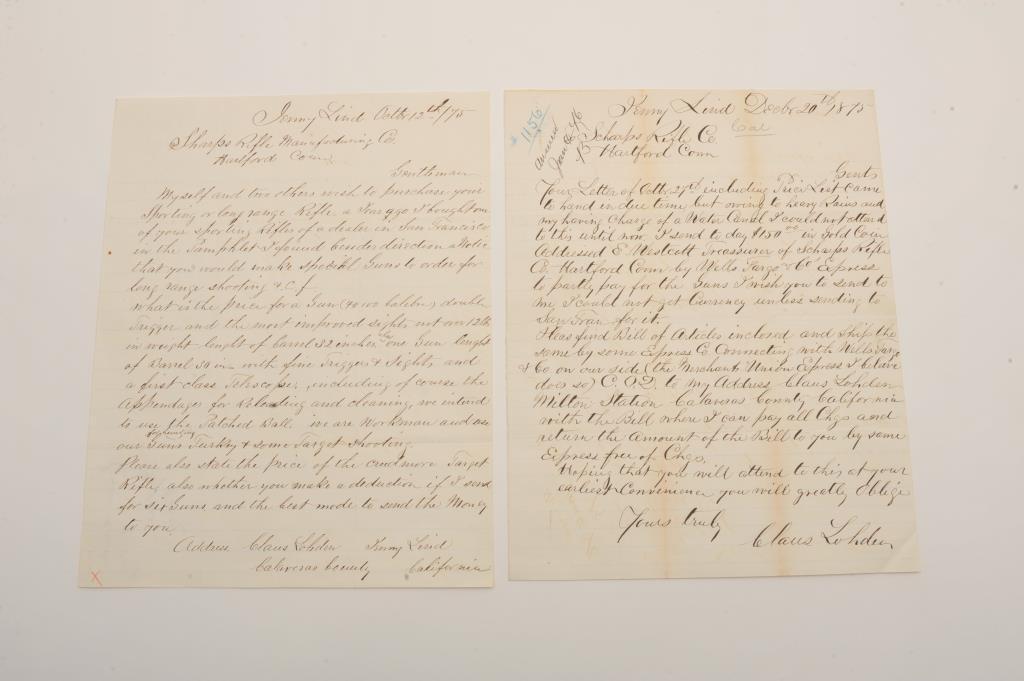 Jenny Lind Octbr 12th/75
Sharps Rifle Manufacturing Co.
Hartford Conn
Gentleman
Myself and two others wish to purchase your
Sporting or long range Rifle a Years ago I bought one
of your Sporting Rifles of a dealer in San Francisco
in the Pamphlet I found besides direction a Notice
that you would make special Guns to order for
long range shooting & C.
What is the Price for a Gun (40 100 Calibre) double
Trigger and the most improved sights not over 12 lb
in weight lenght of barrel 32 inches one Gun lenght
of Barrel 30 in with fine Trigger & Sights and
a first class Telescope, including of course the
Appendages for Reloading and cleaning, we intend
to use the Patched Ball. we are Workman and use
our Guns Turkey & some Target shooting
Please also state the price of the Creedmore Target
Rifle, also whether you make a deduction if I send
for six Guns and the best mode to send the Money
to you.
Address Claus Lohden Jenny Lind
Calaveras County California
X
1156
answered
Jan 6 76
Jenny Lind Decbr 20th 1875
Cal
Scharps Rifle Co.
Hartford Conn
Gents
Your Letter of Octbr 27th including Price List came
to hand in due time but owing to heavy Rains and
my having Charge of a Water Canal I could not attend
to this until now. I send to day $150 00 in Gold Coin
Addressed E. Westcott Treasurer of Scharps Rifle
Co. Hartford Conn by Wells Fargo & Co Express
to partly pay for the Guns I wish you to send to
me, I could not get Currency unless sending to
San Fran for it.
Pleas find Bill of Aticles inclosed and Ship the
same by some Express Co. Connecting with Wells Fargo
& Co on our side (the Merchants Union Express I beleive
does so) C.O.D. to my Address Claus Lohden
Milton Station Calaveras County California
with the Bill where I can pay all Chgs and
return the Amount of the Bill to you by same
Express free of Chgs.
Hoping that you will attend to this at your
earliest Convenience you will greatly oblige
Yours truly
Claus Lohden